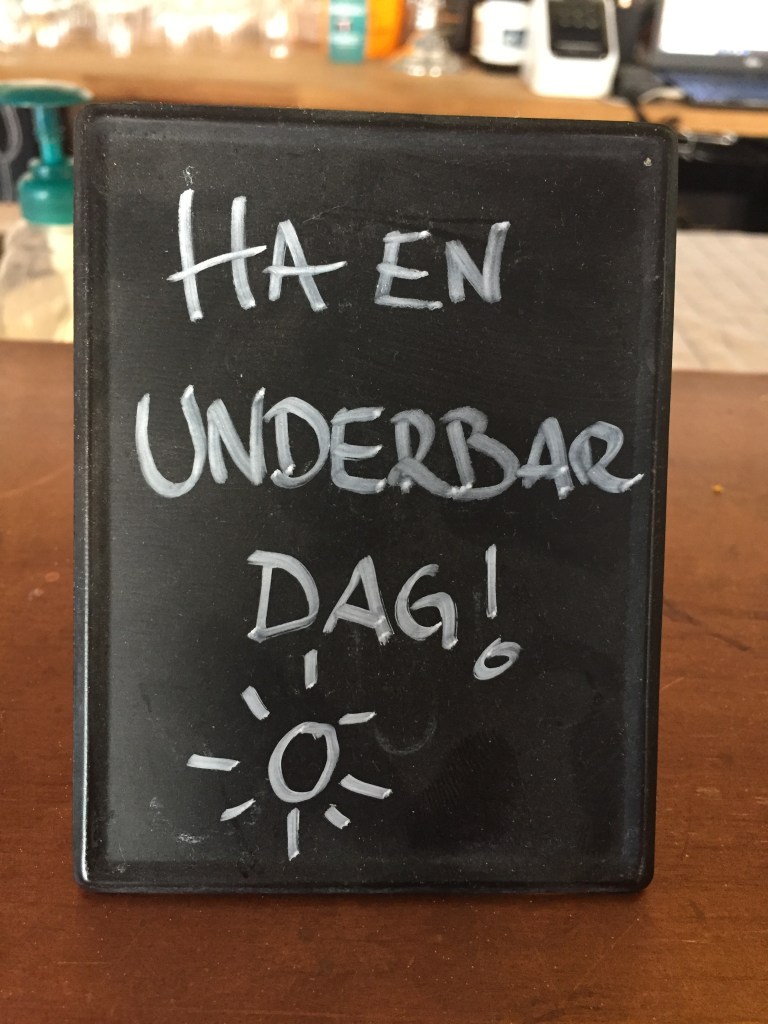 HA EN
UNDERBAR
DAG!